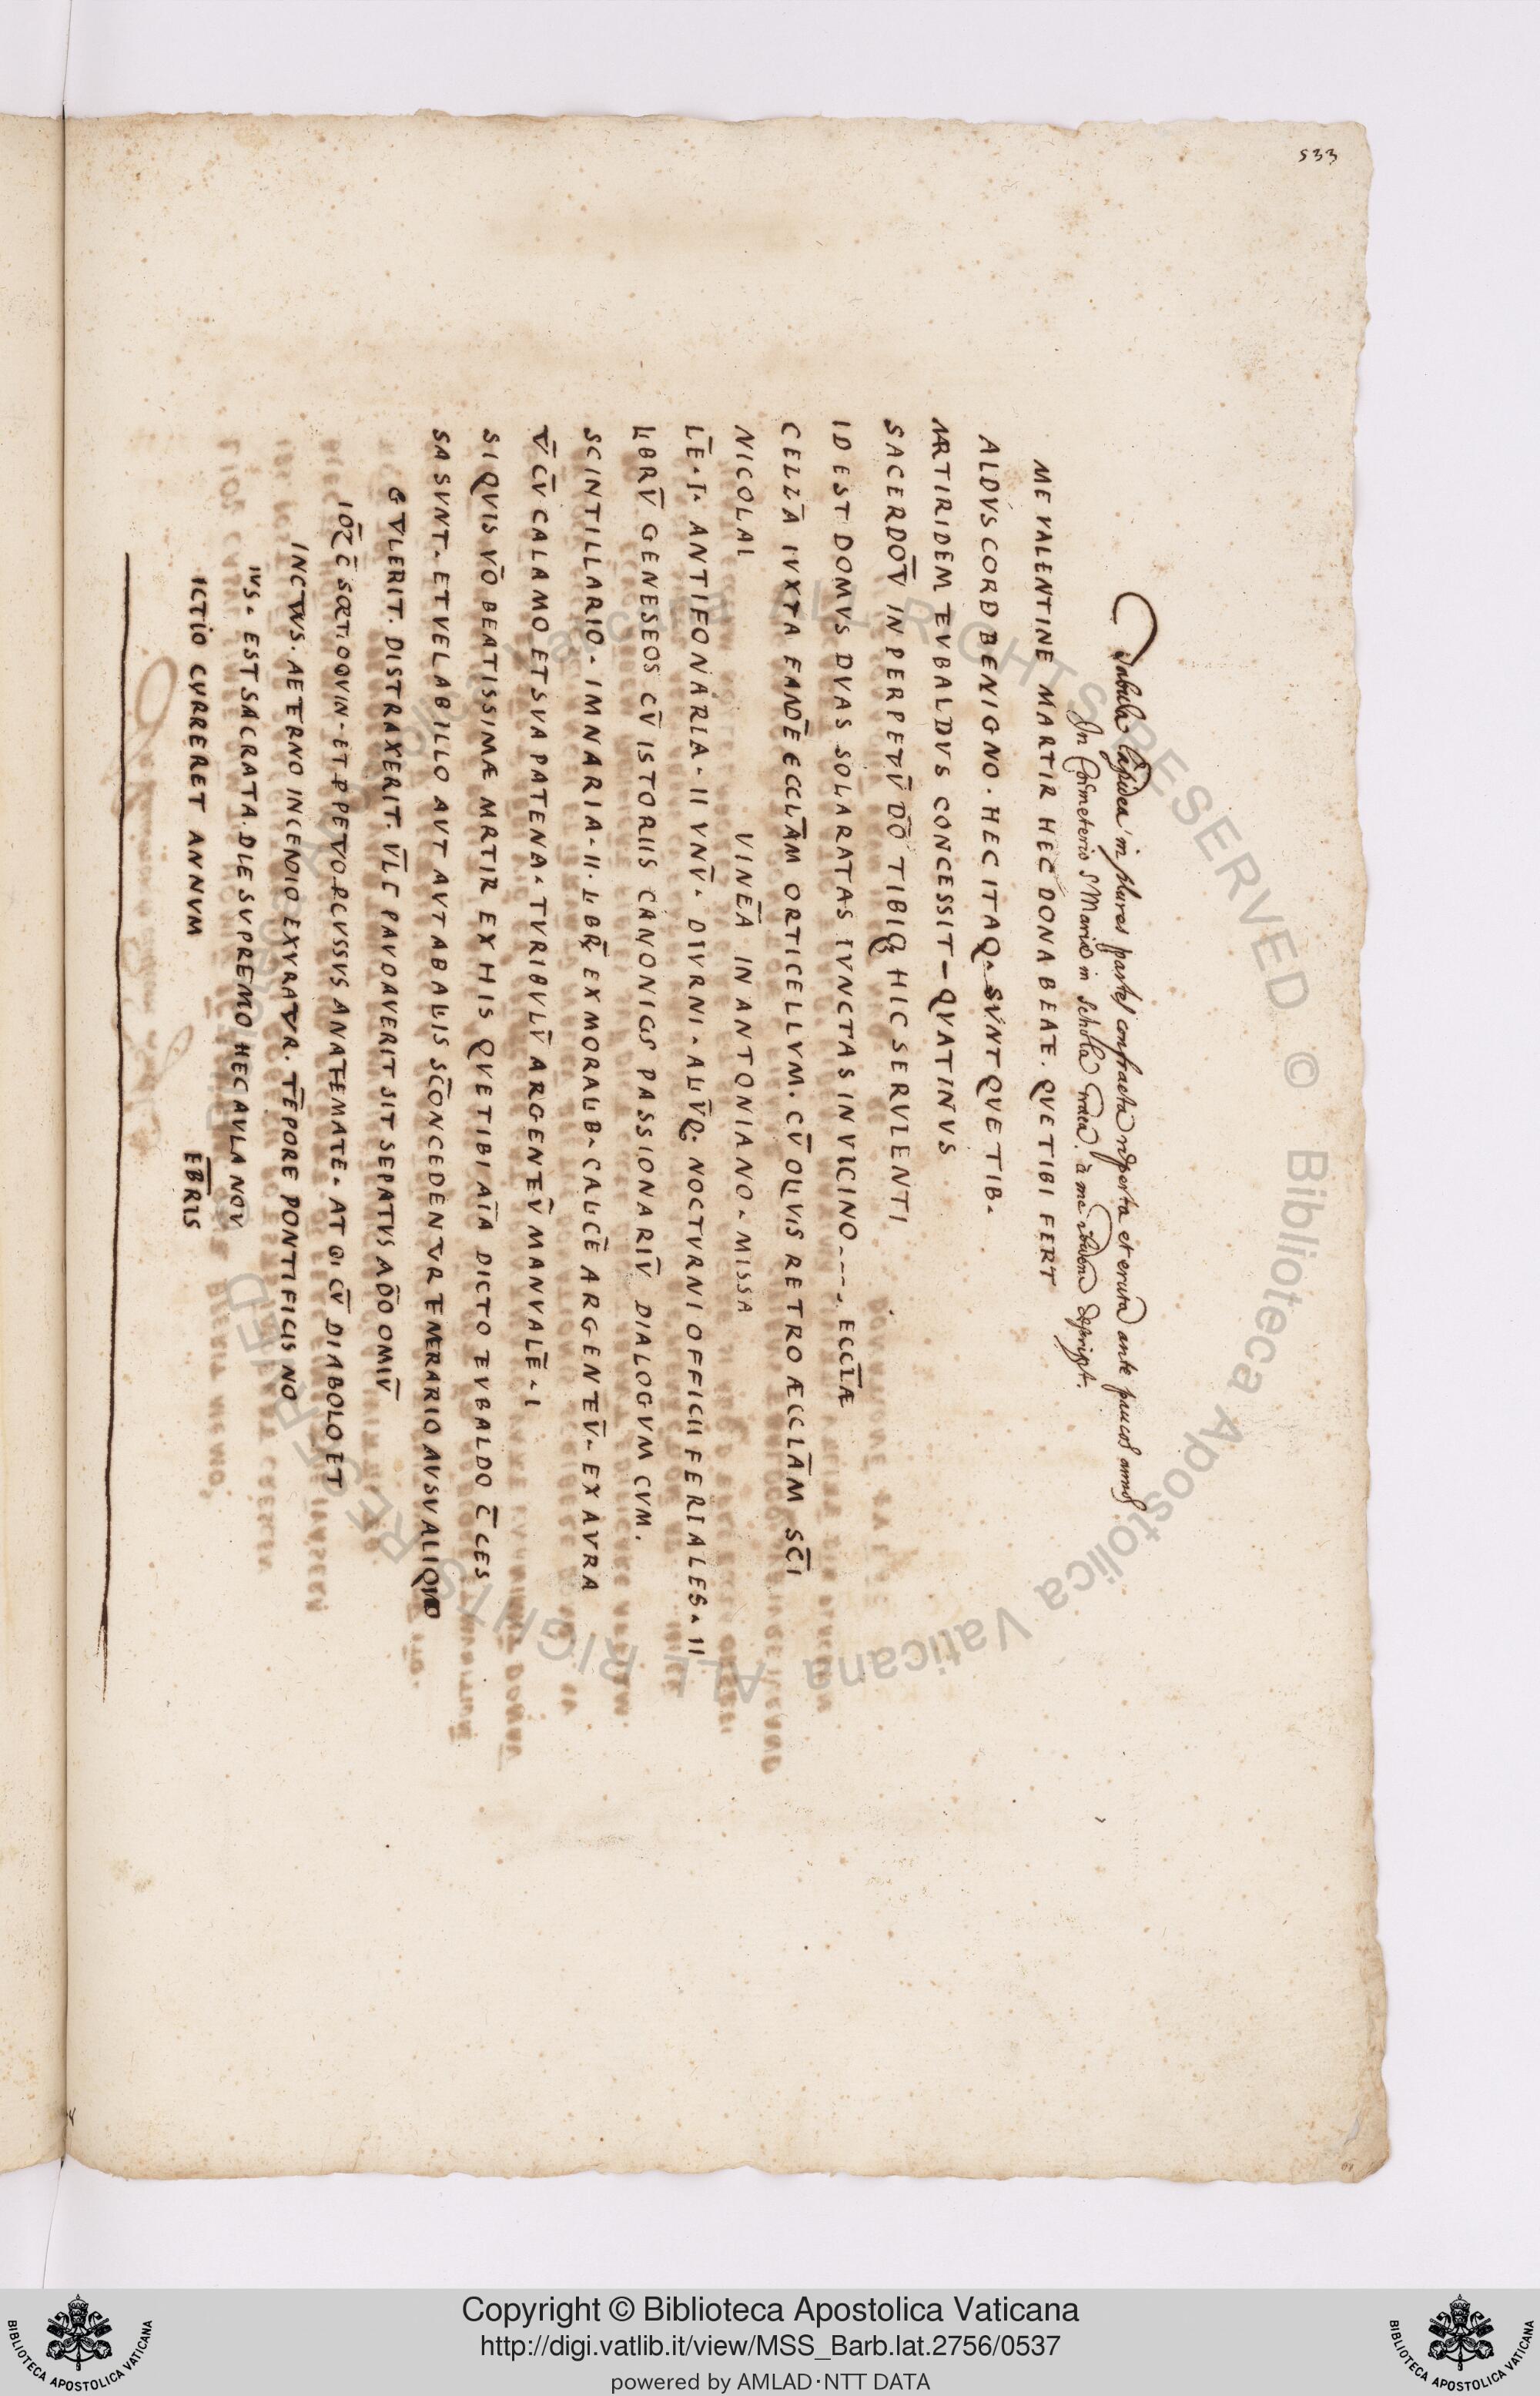 533
Tabula lapidea in plures partes confracta reperta et eruta ante paucos annos
In Coemeterio S Mariae in Schola Graeca. a me ibidem descript.
ME VALENTINE MARTIR HEC DONA BEATE. QVE TIBI FERT
ALDVS CORD BENIGNO. HEC ITAQ. SVNT QVE TIB.
MRTIRIDEM TEVBALDVS CONCESSIT - QVATINVS
SACERDOV̅ IN PERPETVV̅ DO̅ TIBIQ HIC SERVLENTI
ID EST DOMVS DVAS SOLARATAS IVNCTAS IN VICINO ---. ECCL̅Æ
CELLA̅ IVXTA EANDE̅ ECCLA̅M ORTICELLVM. CV̅ OLIVIS RETRO ÆCCLA̅M SC̅I
NICOLAI VINEA̅ IN ANTONIANO. MISSA
LE̅. I. ANTIFONARIA. II VNV̅. DIVRNI. ALIV̅Q. NOCTVRNI OFFICII FERIALES. II
LIBRV̅ GENESEOS CV̅ ISTORIIS CANONICIS PASSIONARIV̅ DIALOGVM CVM.
SCINTILLARIO. IMNARIA. II. LIBR̅ EX MORALIB. CALICE̅ ARGENTEV̅. EX AVRA
TV̅ CV̅ CALAMO ET SVA PATENA. TVRIBVLV̅ ARGENTEV̅ MANVALE̅. I
SI QVIS VO̅ BEATISSIMÆ MRTIR EX HIS QVE TIBI AI̅A DICTO TEVBALDO C̅CES
SA SVNT. ET VEL AB ILLO AVT AVT AB ALIIS SC̅ONCEDENTVR TEMERARIO AVSV ALIQVO
GTVLERIT. DISTRAXERIT. V̅L C PAVDAVERIT SIT SEPATVS A D̅O OMIV̅
INCTVVS. AETERNO INCENDIO EXVRATVR. TE̅PORE PONTIFICIS NO
IVS. EST SACRATA. DIE SVPREMO HEC AVLA NOV
ICTIO CVRRERET ANNVM E̅B̅RIS
Copyright © Biblioteca Apostolica Vaticana
http://digi.vatlib.it/view/MSS_Barb.lat.2756/0537
powered by AMLAD·NTT DATA
BIBLIOTECA APOSTOLICA VATICANA
BIBLIOTECA APOSTOLICA VATICANA